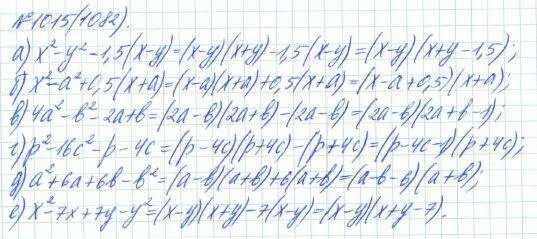 №1015(1082).
а) x²-y²-1,5(x-y)=(x-y)(x+y)-1,5(x-y)=(x-y)(x+y-1,5);
б) x²-a²+0,5(x+a)=(x-a)(x+a)+0,5(x+a)=(x-a+0,5)(x+a);
в) 4a²-b²-2a+b=(2a-b)(2a+b)-(2a-b)=(2a-b)(2a+b-1);
г) p²-16c²-p-4c=(p-4c)(p+4c)-(p+4c)=(p-4c-1)(p+4c);
д) a²+6a+6b-b²=(a-b)(a+b)+6(a+b)=(a-b-6)(a+b);
е) x²-7x+7y-y²=(x-y)(x+y)-7(x-y)=(x-y)(x+y-7).